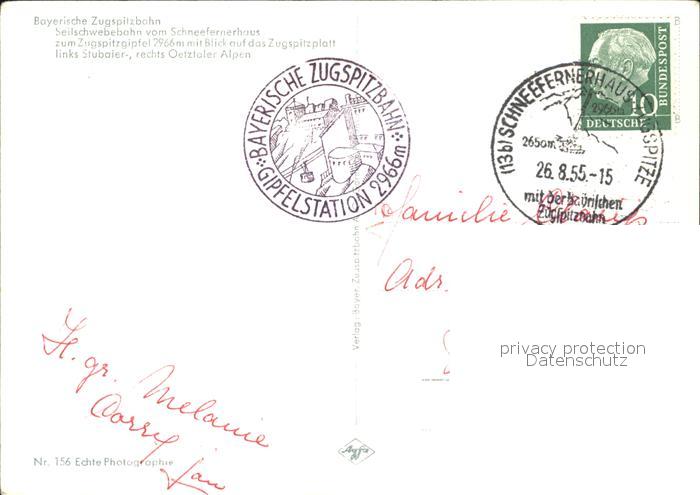 Bayerische Zugspitzbahn
Seilschwebebahn vom Schneefernerhaus
zum Zugspitzgipfel 2966m mit Blick auf das Zugspitzplatt
links Stubaier-, rechts Oetztaler Alpen
BAYERISCHE ZUGSPITZBAHN
GIPFELSTATION 2966m
(13b) SCHNEEFERNERHAUS ZUGSPITZE
2966m
2650m
26.8.55.-15
mit der bayrischen
Zugspitzbahn
10
DEUTSCHE
BUNDESPOST
Familie
Adr.
privacy protection
Datenschutz
Verlag: Bayer. Zugspitzbahn
H. gr. Melanie
Jan
Agfa
Nr. 156 Echte Photographie